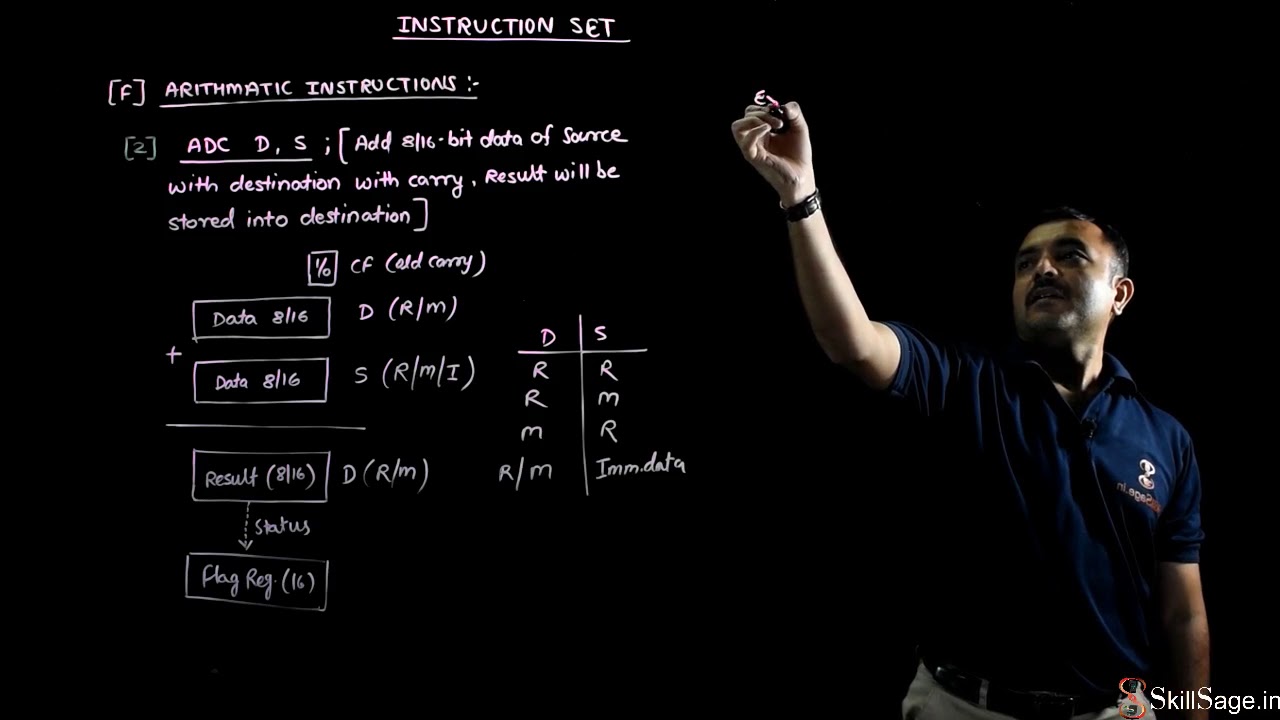 INSTRUCTION SET
[F] ARITHMATIC INSTRUCTIONS :-
[2] ADC D, S ; [ Add 8/16-bit data of source
with destination with carry, Result will be
stored into destination ]
1/0 CF (old carry)
Data 8/16 D (R/m)
+
Data 8/16 S (R/m/I)
Result (8/16) D (R/m)
status
Flag Reg. (16)
D S
R R
R m
m R
R/m Imm.data
SkillSage.in